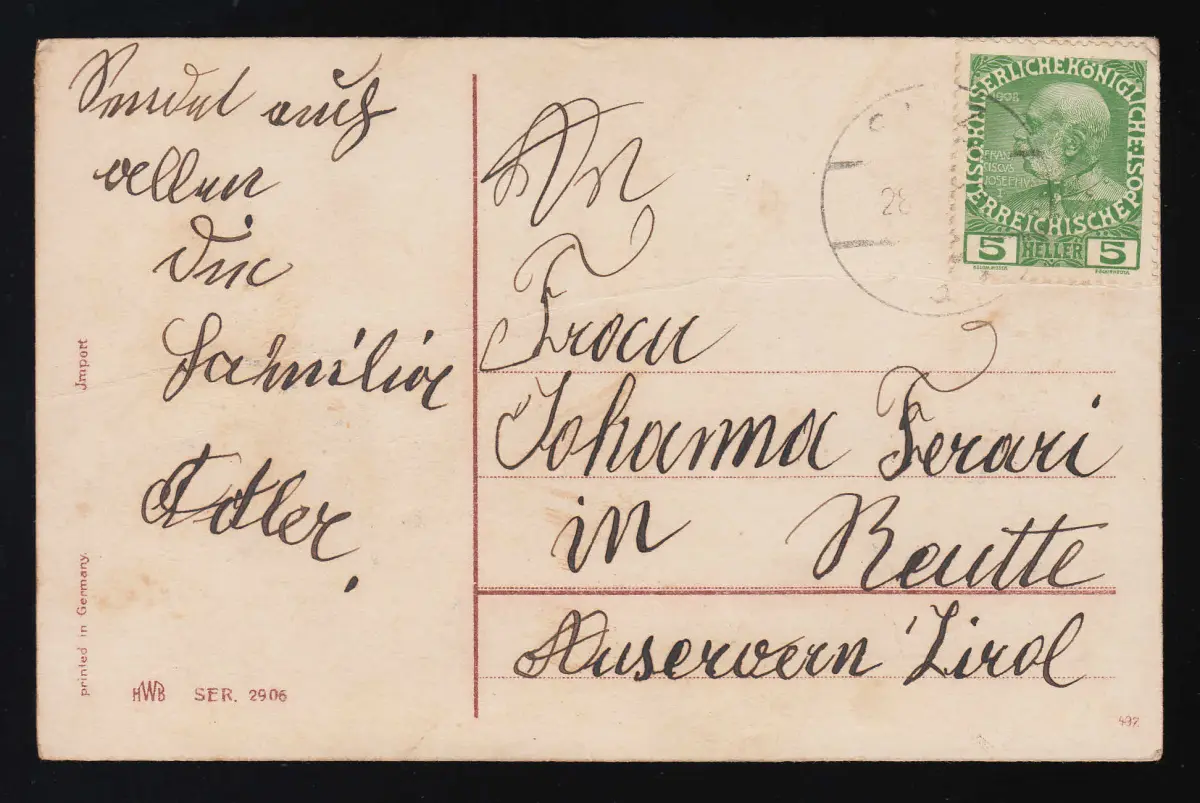 Sendet auch
allen
die
Familie
Adler.
An
Frau
Johanna Ferari
in Reutte
Auservern Tirol
KAISERLICHE KÖNIGLICHE
ÖSTERREICHISCHE POST
1908
FRAN
CISCVS
IOSEPHVS
5 HELLER 5
28
Import
printed in Germany.
HWB SER. 2906
492